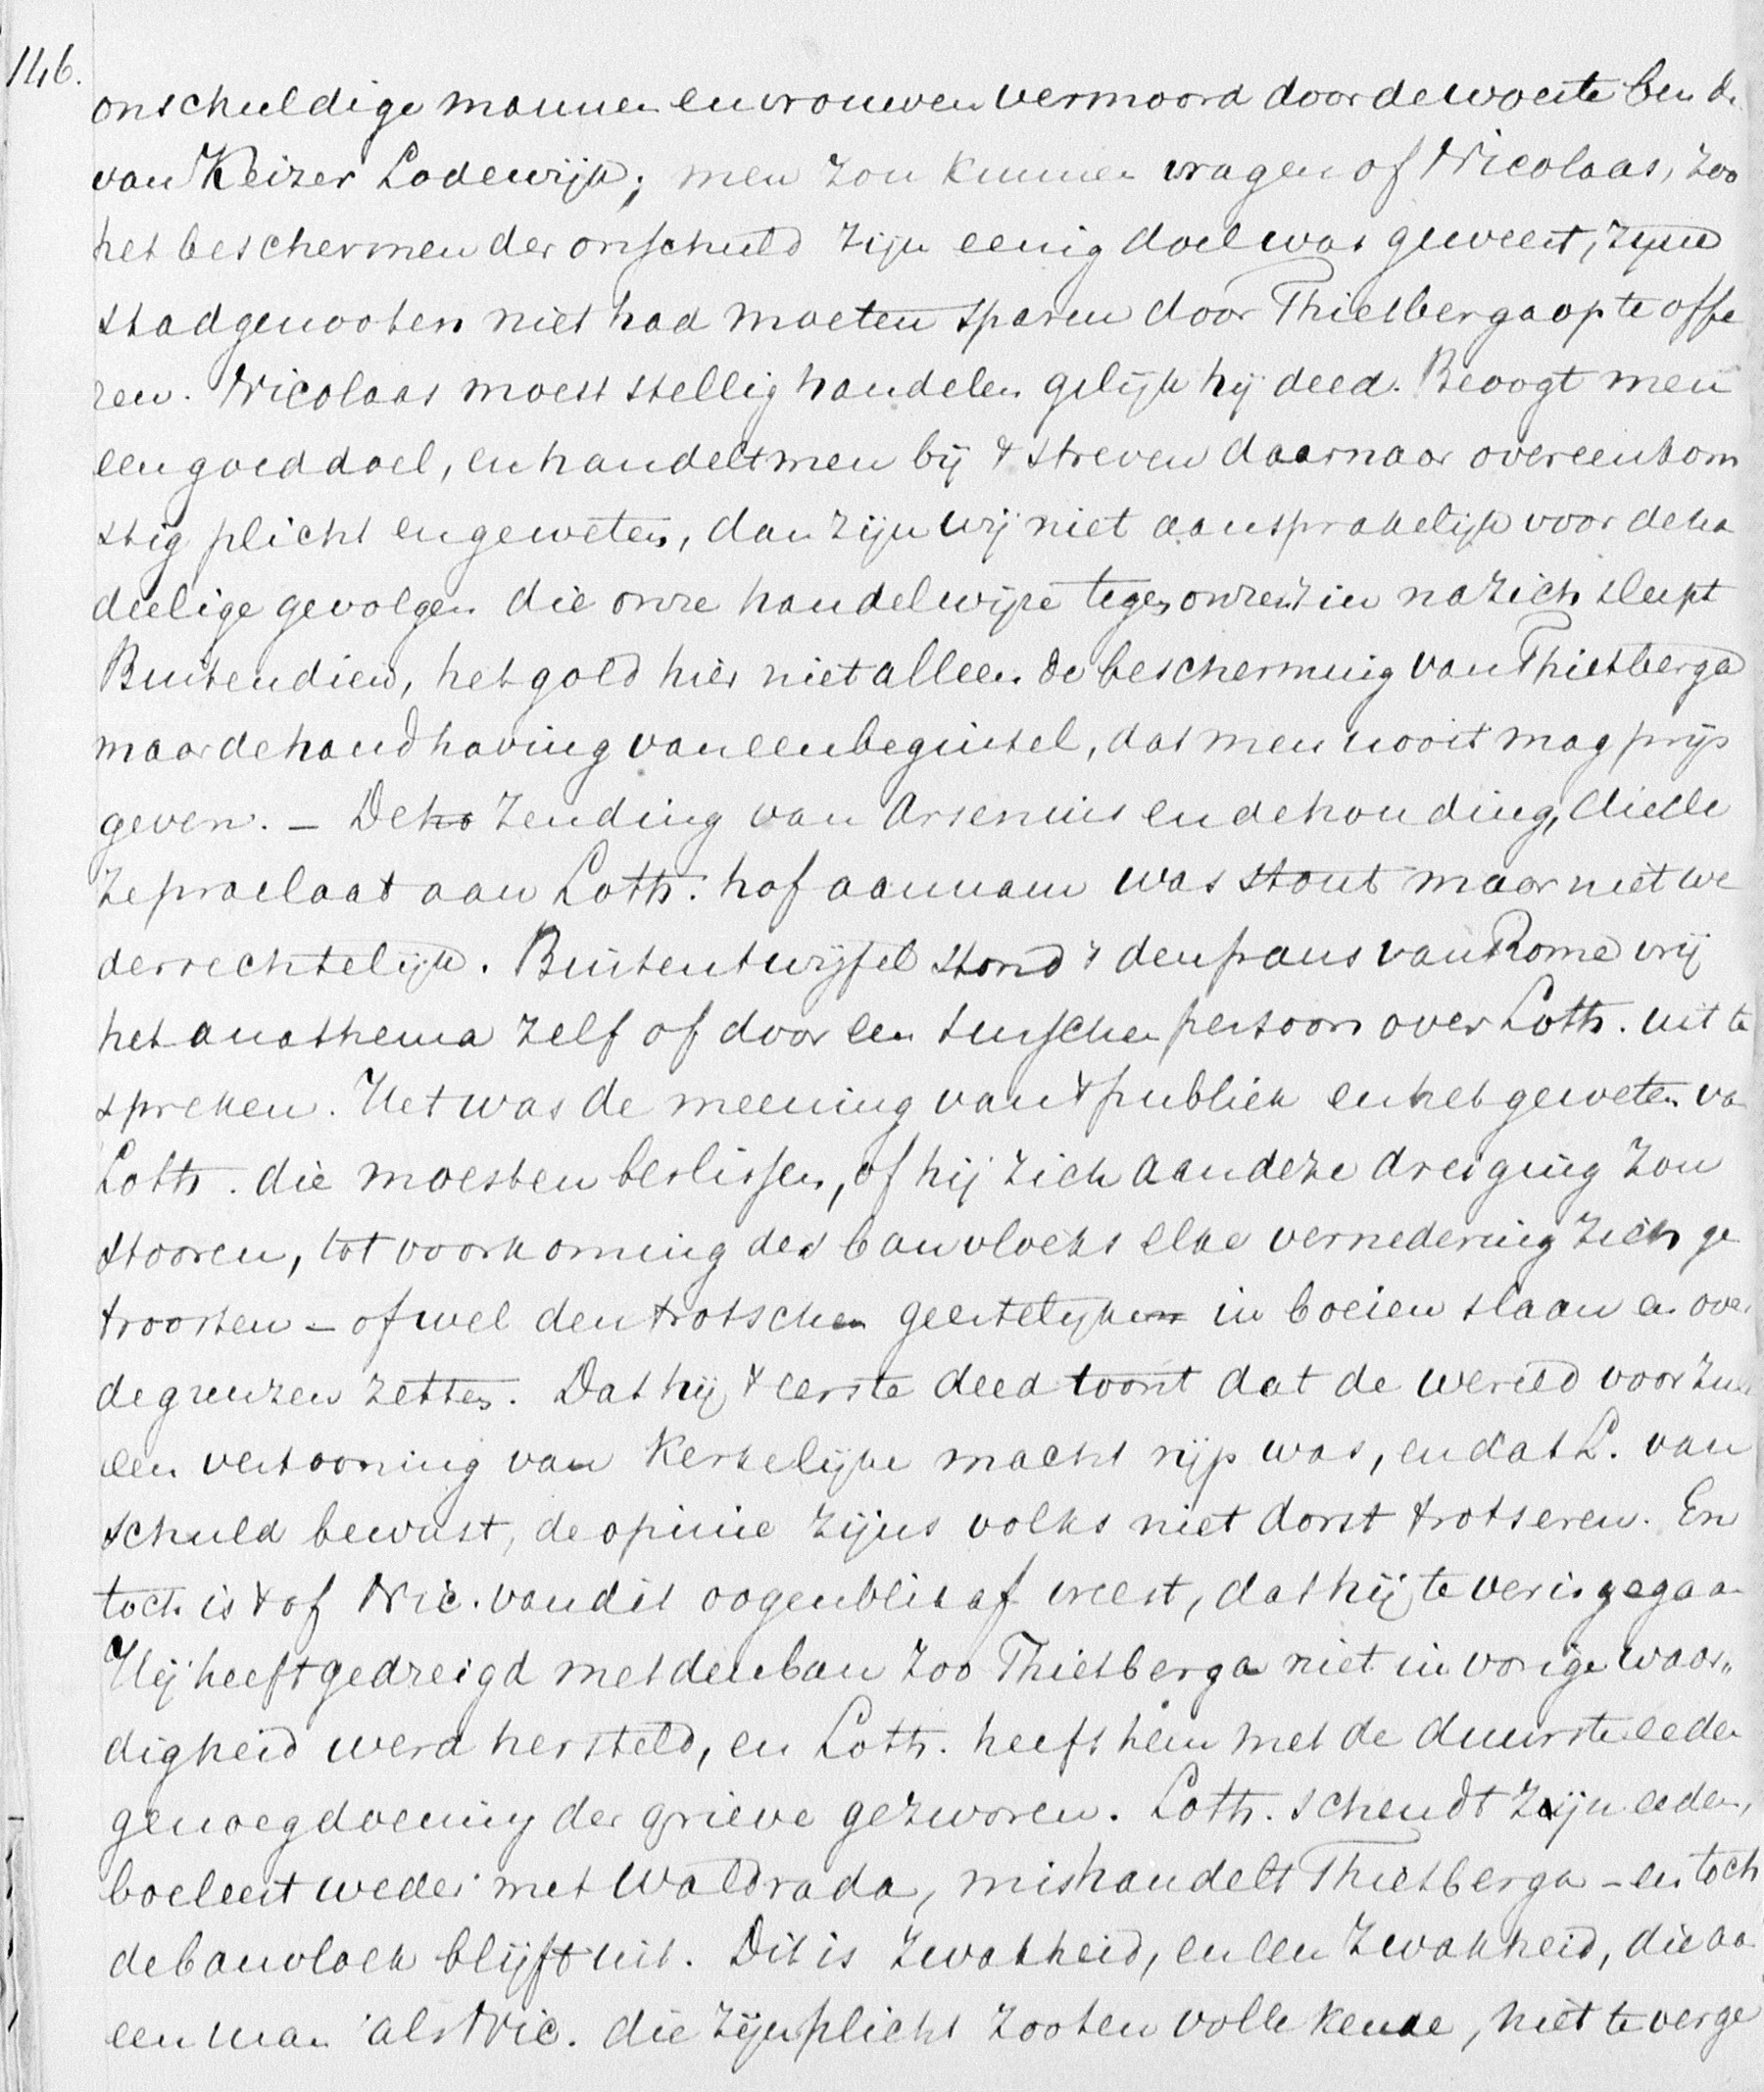 146.
onschuldige mannen en vrouwen vermoord door de woeste bende
van Keizer Lodewijk; men zou kunnen vragen of Nicolaas, zoo
het beschermen der onschuld zijn eenig doel was geweest, zijne
stadgenooten niet had moeten sparen door Thietberga op te offe
ren. Nicolaas moest stellig handelen gelijk hij deed. Beoogt men
een goed doel, en handelt men bij 't streven daarnaar overeenkom
stig plicht en geweten, dan zijn wij niet aansprakelijk voor de na
deelige gevolgen die onze handelwijze tegen onzen zin na zich sleept
Buitendien, het gold hier niet alleen de bescherming van Thietberga
maar de handhaving van een beginsel, dat men nooit mag prijs
geven. – De zending van Arsenius en de houding, die de
ze praelaat aan Loth. hof aannam was stout maar niet we
derrechtelijk. Buiten twijfel stond 't den paus van Rome vrij
het anathema zelf of door een tusschen persoon over Loth. uit te
spreken. Het was de meening van 't publiek en het geweten va
Loth. die moesten beslissen, of hij zich aan deze dreiging zou
stooren, tot voorkoming des banvloeks elke vernedering zich ge
troosten – ofwel den trotschen geestelijken in boeien slaan en over
de grenzen zetten. Dat hij 't eerste deed toont dat de wereld voor zulk
een vertooning van kerkelijke macht rijp was, en dat L. van
schuld bewust, de opinie zijns volks niet dorst trotseren. En
toch is 't of Nic. van dit oogenblik af vreest, dat hij te ver is gegaan
Hij heeft gedreigd met den ban zoo Thietberga niet in vorige waar„
digheid werd hersteld, en Loth. heeft hem met de duurste eeden
genoegdoening der grieve gezworen. Loth. schendt zijn eeden,
boeleert weder met Waldrada, mishandelt Thietberga – en toch
de banvloek blijft uit. Dit is zwakheid, en een zwakheid, die aa
een man als Nic. die zijn plicht zoo ten volle kende, niet te verge